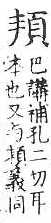 巴講補孔二切耳
本也又与義同